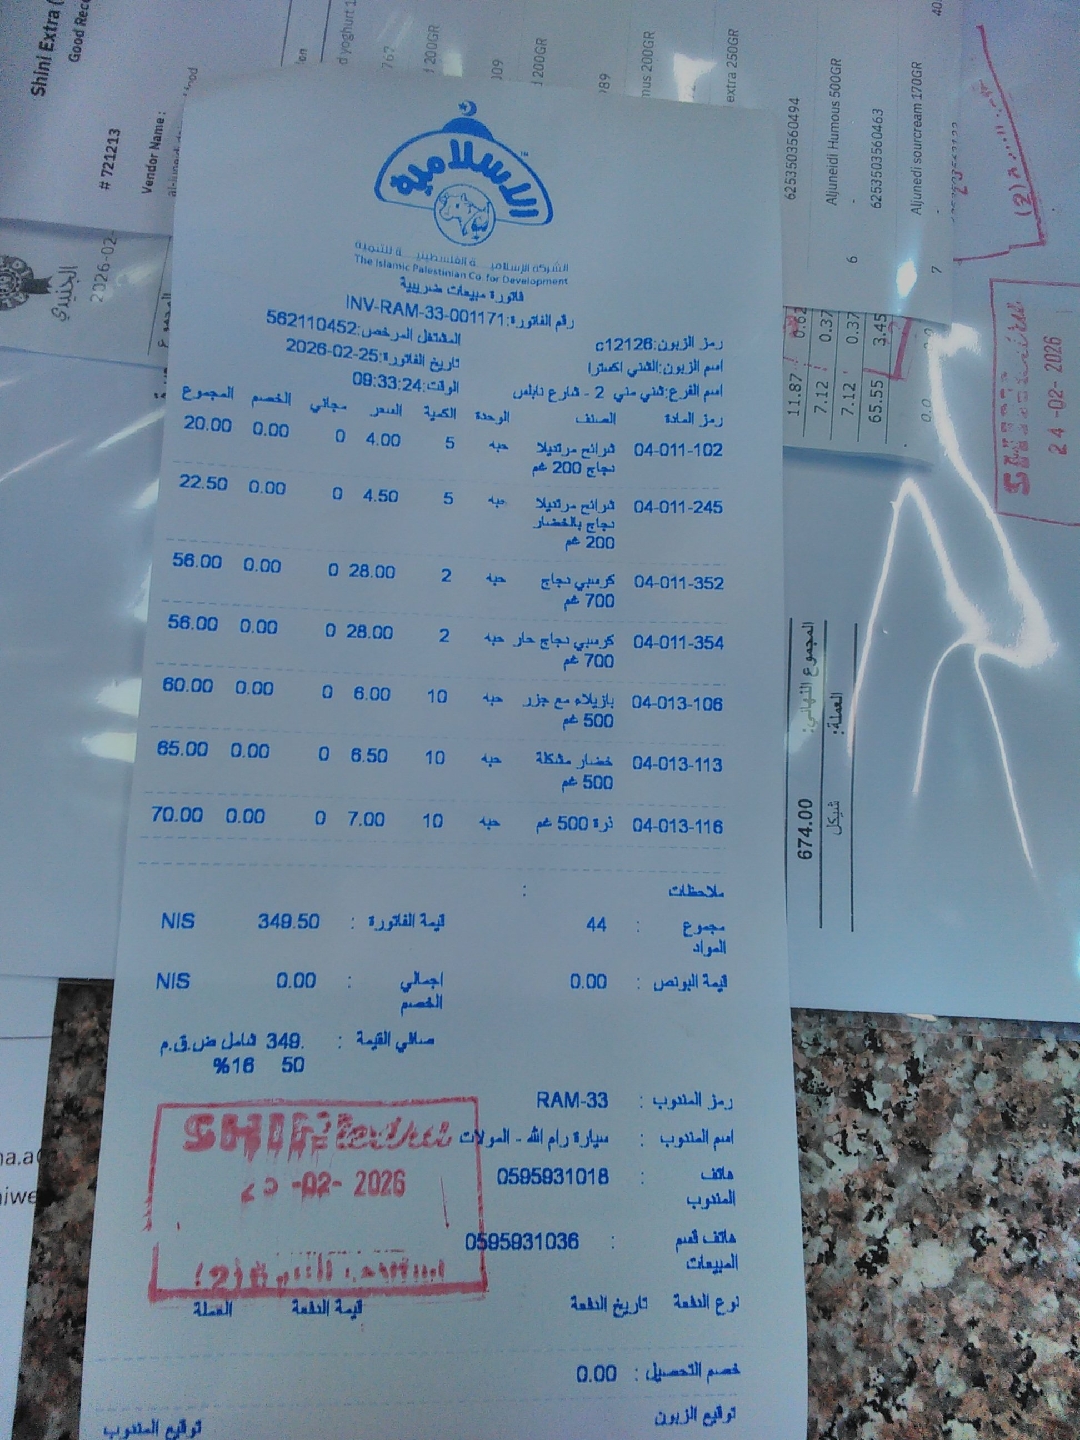 الاسلامية
الشركة الإسلامية الفلسطينية للتنمية
The Islamic Palestinian Co. for Development
فاتورة مبيعات ضريبية
رقم الفاتورة:INV-RAM-33-001171
المشتغل المرخص:562110452
رمز الزبون:c12126
تاريخ الفاتورة:2026-02-25
اسم الزبون:الشني اكسترا
الوقت:09:33:24
اسم الفرع:شني مني 2 - شارع نابلس
رمز المادة الصنف الوحدة الكمية السعر مجاني الخصم المجموع
04-011-102 شرائح مرتديلا حبه 5 4.00 0 0.00 20.00
دجاج 200 غم
04-011-245 شرائح مرتديلا حبه 5 4.50 0 0.00 22.50
دجاج بالخضار
200 غم
04-011-352 كرسبي دجاج حبه 2 28.00 0 0.00 56.00
700 غم
04-011-354 كرسبي دجاج حار حبه 2 28.00 0 0.00 56.00
700 غم
04-013-106 بازيلاء مع جزر حبه 10 6.00 0 0.00 60.00
500 غم
04-013-113 خضار مشكلة حبه 10 6.50 0 0.00 65.00
500 غم
04-013-116 ذرة 500 غم حبه 10 7.00 0 0.00 70.00
ملاحظات :
مجموع المواد : 44 قيمة الفاتورة : 349.50 NIS
قيمة البونص : 0.00 اجمالي الخصم : 0.00 NIS
صافي القيمة : 349.50 شامل ض.ق.م 16%
رمز المندوب : RAM-33
اسم المندوب : سيارة رام الله - المولات
هاتف المندوب : 0595931018
هاتف قسم المبيعات : 0595931036
نوع الدفعة تاريخ الدفعة قيمة الدفعة العملة
خصم التحصيل : 0.00
توقيع الزبون توقيع المندوب
-02- 2026
(2)
Shini Extra (
Good Rec
# 721213
Vendor Name :
الجنيدي
2026-02-
200GR
200GR
200GR
extra 250GR
6253503560494
Aljuneidi Humous 500GR
-
6
6253503560463
Aljunedi sourcream 170GR
-
7
11.87 0.62
7.12 0.37
7.12 0.37
65.55 3.45
(2)
24 -02- 2026
المجموع النهائي: 674.00
العملة: شيكل